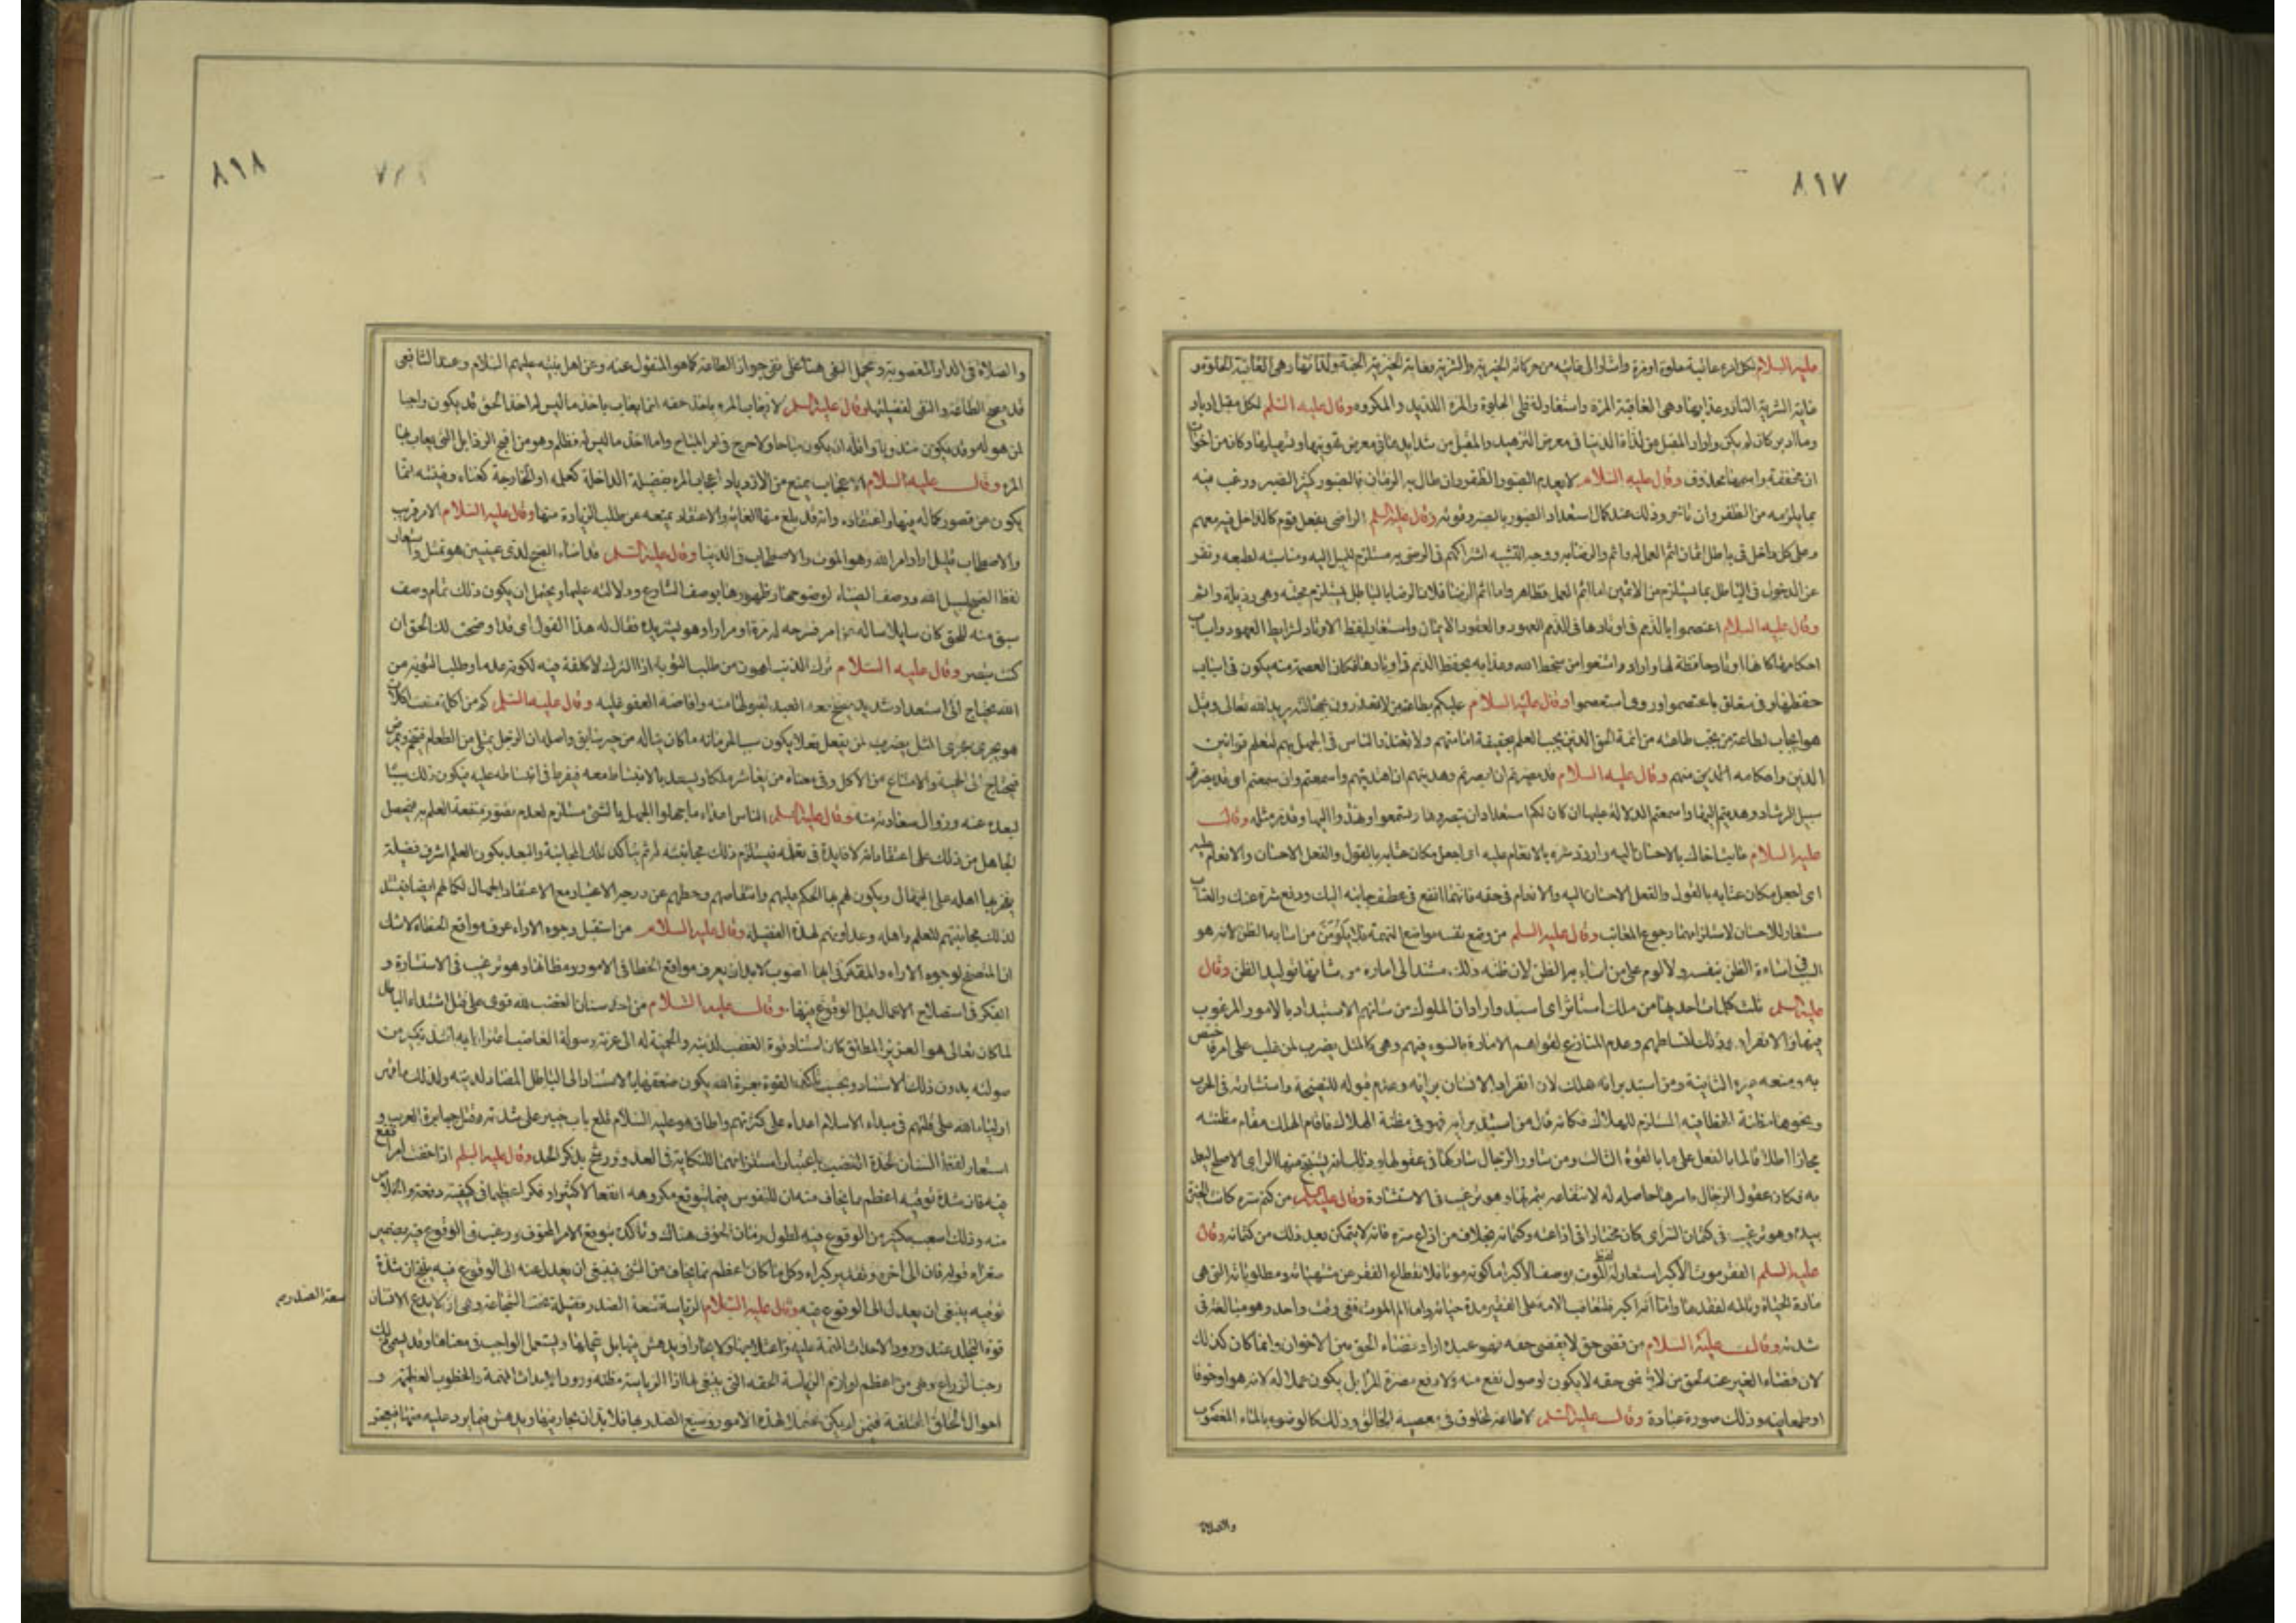 ٨١٧
عليه السلام لكل امرء عاقبة حلوة او مرة واشار الى غايته من حركاته الخيرية والشرية فغاية الخيرية الجنة ولذاتها وهى العاقبة الحلوة و
غاية الشرية النار وعذابها وهى العاقبة المرة واستعار لفظى الحلوة والمرة اللذيذ والمكروه وقال عليه السلم لكل مقبل ادبار
وما ادبر كان لم يكن واراد المقبل من لذات الدنيا فى معرض التزهيد والمقبل من شدايدها فى معرض تهوينها وتسهيلها وكان من اخوات
ان مخففة واسمها محذوف وقال عليه السلام لا يعدم الصبور الظفر وان طال به الزمان فالصبور كثير الصبر ورغب فيه
بما يلزمه من الظفر وان تأخر وذلك عند كمال استعداد الصبور بالصبر وقوته وقال عليه السلم الراضى بفعل قوم كالداخل فيه معهم
وعلى كل داخل فى باطل اثمان اثم العمل به واثم والرضا به ووجه التشبيه اشتراكهم فى الرضى به مستلزم للميل اليه ومناسبته لطبعه ونفر
عن الدخول فى الباطل بما يستلزم من الاثمين اما اثم العمل فظاهر واما اثم الرضا فلان الرضا بالباطل يستلزم محبته وهى رذيلة واثم
وقال عليه السلام اعتصموا بالذمم فى اوتادها فى الذمم العهود والعقود الايمان واستعار لفظ الاوتاد لشرايط العهود واسباب
احكامها كانها اوتاد حافظة لها واراد وامتنعوا من سخط الله وعذابه بحفظ الذمم فى اوتادها فكان العصمة منه يكون فى اسباب
حفظها وفى متعلق باعتصموا وروى استعصموا وقال عليه السلام عليكم بطاعة من لا تعذرون بجهالته يريد الله تعالى وقيل
هو ايجاب لطاعة من يجب طاعته من ائمة الحق الذين يجب العلم بحقيقة امامتهم ولا يعذر الناس فى الجهل بهم لتعلم قوانين
الدين واحكامه الحدين منهم وقال عليه السلام قد بصرتم ان ابصرتم وهديتم ان اهتديتم واسمعتم وان سمعتم اى قد بصرتم
سبيل الرشاد وهديتم اليها واسمعتم الدلالة عليها ان كان لكم استعداد ان تبصروها وتستمعوا وتهتدوا اليها وقد مر مثله وقال
عليه السلام عاتب اخاك بالاحسان اليه واردد شره بالانعام عليه اى اجعل مكان عتابه بالقول والفعل الاحسان والانعام عليه
اى اجعل مكان عتابه بالقول والفعل الاحسان اليه والانعام فى حقه فانهما انفع فى عطف جانبه اليك ودفع شره عنك والعتاب
مستعار للاحسان لاستلزامهما رجوع المعاتب وقال عليه السلم من وضع نفسه مواضع التهمة فلا يلومن من اساء به الظن لانه هو
السبب فى اساءة الظن بنفسه ولا لوم على من اساء به الظن لان ظنه ذلك مستند الى امارة من شانها توليد الظن وقال
عليه السلم ثلث كلمات احدها من ملك استأثر اى استبد واراد ان الملوك من شانهم الاستبداد بالامور المرغوب
فيها والانفراد وذلك لتسلطهم وعدم المنازع لقواهم الامارة بالسوء فيهم وهى كالمثل يضرب لمن غلب على امر فاختص
به ومنعه غيره الثانية ومن استبد برأيه هلك لان انفراد الانسان برأيه وعدم قبوله للنصيحة واستشارته فى الحرب
ونحوها مظنة الخطا فيه المستلزم للهلاك فكانه قال من استبد برايه فهو فى مظنة الهلاك فاقام الهلاك مقام مظنته
مجازا اطلاقا لما بالفعل على ما بالقوة الثالث ومن شاور الرجال شاركها فى عقولها وذلك انه يستنتج منها الراى الاصلح ليعمل
به فكان عقول الرجال باسرها حاصلة له لانتفاعه بثمرتها وهو ترغيب فى الاستشارة وقال عليه السلم من كتم سره كانت الخيرة
بيده وهو ترغيب فى كتمان السر اى كان مختارا فى اذاعته وكتمانه بخلاف من اذاع سره فانه لا يتمكن بعد ذلك من كتمانه وقال
عليه السلم الفقر موت الأكبر استعار له لفظ الموت ووصف الأكبر اما كونه موتا فلانقطاع الفقير عن مشتهياته ومطلوباته التى هى
مادة الحياة وتالمه لفقدها واما انه اكبر فلتعاقب الامه على الفقير مدة حياته واما الم الموت ففى وقت واحد وهو مبالغة فى
شدته وقال عليه السلام من قضى حق من لا يقضى حقه فهو عبده اراد قضاء الحق بين الاخوان وانما كان كذلك
لان قضاء الغير عنه لحق من لا يقضى حقه لا يكون لوصول نفع منه ولا دفع مضرة المرا بل يكون عملا له لانه هو او خوفا
او طمعا منه وذلك صورة عبادة وقال عليه السلم لا طاعة لمخلوق فى معصية الخالق وذلك كالوضوء بالماء المغصوب
والصلاة
٨١٨
والصلاة فى الدار المغصوبة ويحمل النفى هنا على نفى جواز الطاعة كما هو المنقول عنه وعن اهل بيته عليهم السلام وعند الشافعى
قد يصح الطاعة والنفى لفضيلتها وقال عليه السلم لا يعاب المرء باخذ حقه انما يعاب باخذ ما ليس له اخذ الحق قد يكون واجبا
لمن هو له وقد يكون مندوبا واقله ان يكون مباحا ولا حرج فى امر المباح واما اخذ ما ليس له فظلم وهو من اقبح الرذايل التى يعاب بها
المرء وقال عليه السلام الاعجاب يمنع من الازدياد اعجاب المرء بفضيلة الداخلة كعلمه او الخارجة كغناه وقنيته انما
يكون عن تصور كماله فيها واعتقاده وانه قد بلغ منها الغاية والاعتقاد يمنعه عن طلب الزيادة منها وقال عليه السلام الامر قريب
والاصطحاب قليل اراد امر الله وهو الموت والاصطحاب فى الدنيا وقال عليه السلم قد اضاء الصبح لذى عينين هو تمثل واستعار
لفظ الصبح لسبيل الله ووصف الضياء لوضوحها وظهورها بوصف الشارع ودلالته عليها ويحتمل ان يكون ذلك تمام وصف
سبق منه للحق كان سايلا ساله فمرّة اومرارا وهو يستزيده فقال له هذا القول اى قد اوضحت لك الحق ان
كنت تبصر وقال عليه السلام ترك الذنب اهون من طلب التوبة اذ الترك لا كلفة فيه لكونه عدما وطلب التوبة من
الله يحتاج الى استعداد شديد يصح معه العبد لقبولها منه وافاضة العفو عليه وقال عليه السلم كم من اكلة منعت اكلات
هو يجرى مجرى المثل يضرب لمن يفعل فعلا يكون سببا لحرمانه ما كان يناله من خير سابق واصله ان الرجل يمتلى من الطعام فيتخم ويمرض
فيحتاج الى الحمية والامتناع من الأكل وفى معناه من يعاشر ملكا ويسعد بالانبساط معه فيفرط فى انبساطه عليه فيكون ذلك سببا
لبعده عنه وزوال سعادته منه وقال عليه السلم الناس اعداء ما جهلوا الجهل بالشئ مستلزم لعدم تصور منفعة العلم به فيحصل
الجاهل من ذلك على اعتقاد انه لا فايدة فى تعلمه فيستلزم ذلك مجانبته له ثم يتأكد تلك المجانبة والبعد بكون العلم اشرف فضيلة
يفخر بها اهله على الجهال ويكون لهم بها الحكم عليهم وانتقاصهم وحطهم عن درجة الاعتبار مع الاعتقاد الجهال لكمالهم ايضا فيشتد
لذلك مجانبتهم للعلم واهله وعداوتهم لهذه الفضيلة وقال عليه السلام من استقبل وجوه الاراء عرف مواقع الخطاء لا شك
ان المتصفح لوجوه الاراء والمفكر فى ايها اصوب لا بد ان يعرف مواقع الخطا فى الامور ومظانها وهو ترغيب فى الاستشارة و
الفكر فى استصلاح الاعمال قبل الوقوع فيها وقال عليه السلام من احد سنان الغضب لله قوى على قتل اشداء الباطل
لما كان تعالى هو العزيز المطلق كان استناد قوة الغضب لدينه والحمية له الى عزته وصولة الغاضب اعتزازا به اشد بكثير من
صولته بدون ذلك الاستناد وبحسب تأكد القوة بعزة الله يكون ضعفها بالاستناد الى الباطل المضاد لدينه ولذلك ما قهر
اولياء الله على قلتهم فى مبداء الاسلام اعداءه على كثرتهم واطاق هو عليه السلام قلع باب خيبر على شدته وقتل جبابرة العرب و
استعار لفظ السنان لحدة الغضب باعتبار استلزامهما للنكاية فى العدو ورشح بذكر الحد وقال عليه السلم اذا خفت امرا فقع
فيه فان شدة توقيه اعظم ما يخاف منه ان للنفوس فيما يتوقع مكروهه انفعالا كثيرا وفكرا عظيما فى كيفية دفعه والخلاص
منه وذلك اصعب بكثير من الوقوع فيه لطول زمان الخوف هناك وتأكده بتوقع الامر المخوف ورغب فى الوقوع فيه بضمير
صغراه قوله فان الى آخره وتقدير كبراه وكل ما كان اعظم مما يخاف من الشئ فينبغى ان يعدل عنه الى الوقوع فيه ينتج ان شدة
توقيه ينبغى ان يعدل الى الوقوع فيه وقال عليه السلام آلة الرياسة سعة الصدر فضيلة تحت الشجاعة وهى ان لا يدع الانسان
قوة التجلد عند ورود الاحداث المهمة عليه واعتلاجها ولا يحار او يدهش فيها بل يتحملها ويستعمل الواجب فى معناها وقد يسمى ذلك
رحب الذراع وهى من اعظم لوازم الرياسة الحقة التى ينبغى لها اذ الرياسة مظنة ورود الاحداث المهمة والخطوب العظيمة و
احوال الخلق المختلفة فمن لم يكن محتملا لهذه الامور وسيع الصدر بها فلا بد ان يحار فيها ويدهش فيما يرد عليه منها فيعجز
سعة الصدر